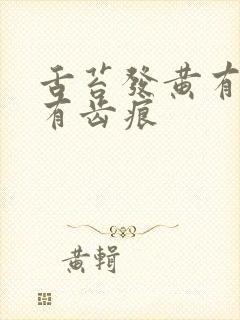 舌苔發黃有
有齿痕
黃輯